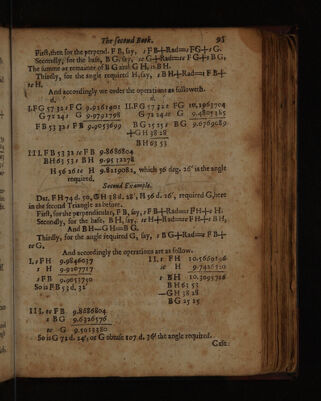 The second Book. 95
First, then for the perpend. F B, say, s FB+Rad=s FG+s G.
Secondly, for the base, B G, say, te G+Rad=t F G+s B G,
The summe or remainer of B G and G H, is B H.
Thirdly, for the angle required H, say, s B H+Rad=t F B+
te H.
And accordingly we order the operations as followeth.
d. d.
I. FG 57 32 s FG 9.9261901 II. FG 57 32 t FG 10.1963704
G 72 24 s G 9.9791798 G 72 24 te G 9.4805385
FB 53 32 s FB 9.9053699 BG 25 25 s BG 9.6769089
+GH 38 28
BH 63 53
III. FB 53 32 te FB 9.8686804
BH 63 53 s BH 9.9532278
H 56 26 te H 9.8219082, which 56 deg. 26' is the angle
required.
Second Example.
Dat. FH 74 d. 50, GH 38 d. 28', H 56 d. 26', required G, here
in the second Triangle as before.
First, for the perpendicular, F B, say, s FB+Rad=s FH+s H:
Secondly, for the base B H, say, te H+Rad=te F H+s B H,
And BH—GH=BG.
Thirdly, for the angle required G, say, s BG+Rad=t FB+
te G.
And accordingly the operations are as follow.
I. s FH 9.9846037 II. t FH
s H 9.9207717 te H
s FB 9.9053750 s BH 10.3095716
So is FB 53 d. 32' BH 63 53
—GH 38 28
BG 25 25
III. te FB 9.8686804
s BG 9.6326576
te G 9.5013380
So is G 72 d. 24', or G obtuse 107 d. 36' the angle required.
Case: